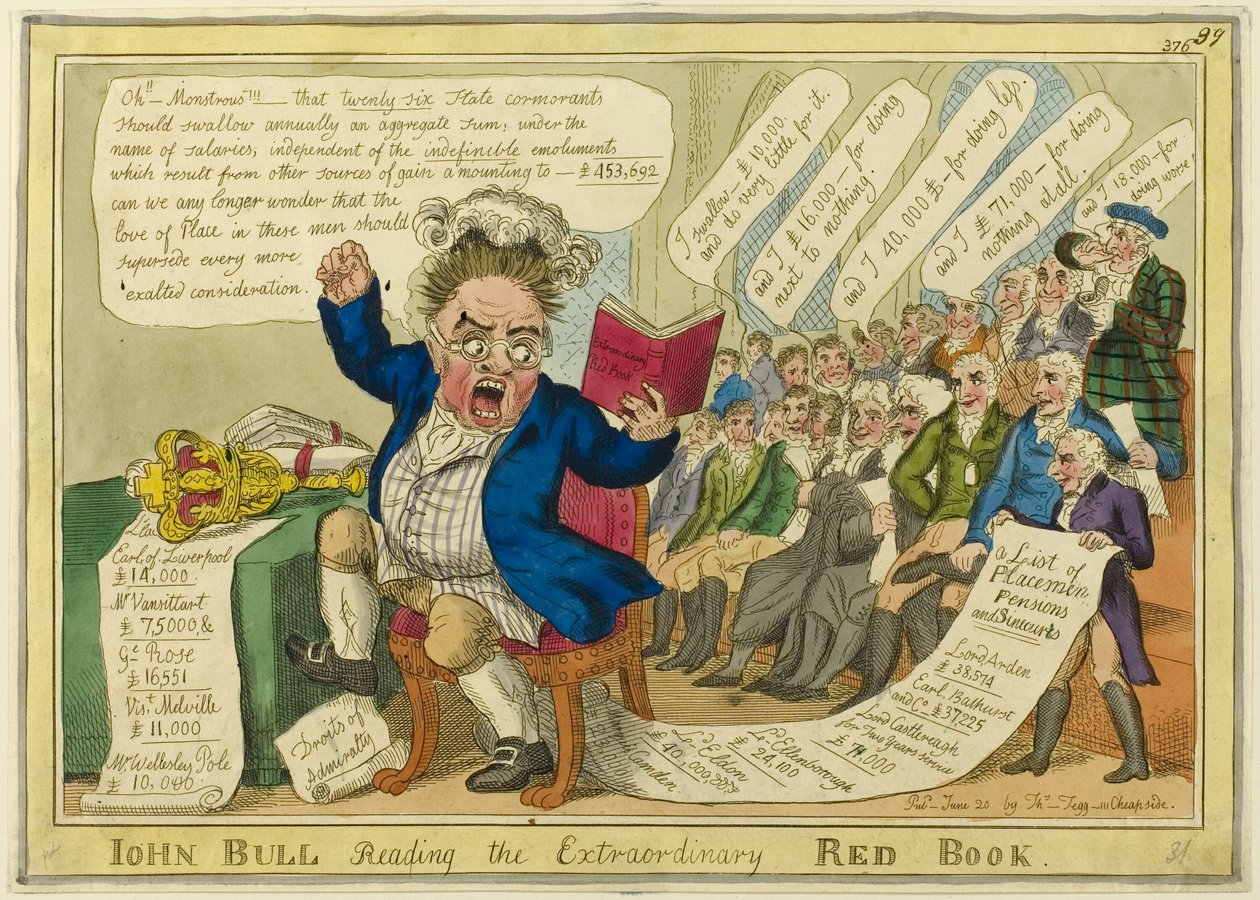 376 99
Oh!! — Monstrous!!! — that twenty six State cormorants
should swallow annually an aggregate sum; under the
name of salaries, independent of the indefinible emoluments
which result from other sources of gain amounting to — £453,692
can we any longer wonder that the
love of Place in these men should
supersede every more
exalted consideration.
I swallow — £10,000.
and do very little for it.
and I £16,000 — for doing
next to nothing.
and I 40,000 £ - for doing less.
and I £71,000 — for doing
nothing at all.
and I 18,000 — for
doing worse
Extraordinary
Red Book
Earl of Liverpool
£14,000
Mr Vansittart
£7,5000, &
Ge Rose
£16,551
Vist Melville
£11,000
Mr Wellesley Pole
£10,000
Droits of
Admiralty
a List of
Placemen
Pensions
and Sinecures
Lord Arden
£38,574
Earl Bathurst
and Co £37,225
Lord Castlereagh
for Two Years service
£71,000
Ld Ellenborough
£24,100
Ld Eldon
£40,000
Camden
Pubd — June 20 by Thos — Tegg — 111 Cheapside.
IOHN BULL Reading the Extraordinary RED BOOK.
31